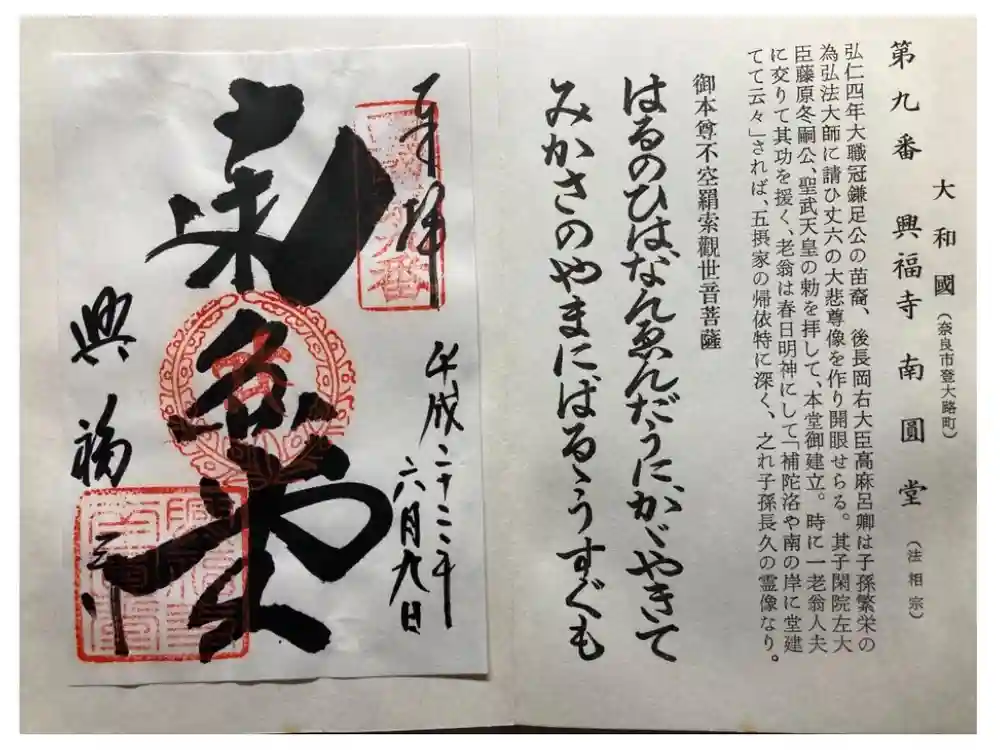 大和國(奈良市登大路町)
第九番 興福寺南圓堂(法相宗)
弘仁四年大職冠鎌足公の苗裔、後長岡右大臣高麻呂卿は子孫繁栄の
為弘法大師に請ひ丈六の大悲尊像を作り開眼せらる。其子閑院左大
臣藤原冬嗣公、聖武天皇の勅を拝して、本堂御建立。時に一老翁人夫
に交りて其功を援く、老翁は春日明神にして「補陀洛や南の岸に堂建
てて云々」されば、五摂家の帰依特に深く、之れ子孫長久の霊像なり。
御本尊不空羂索觀世音菩薩
はるのひはなんゑんだうにかゞやきて
みかさのやまにばるゝうすぐも
奉拝
平成二十二年
六月九日
興福寺